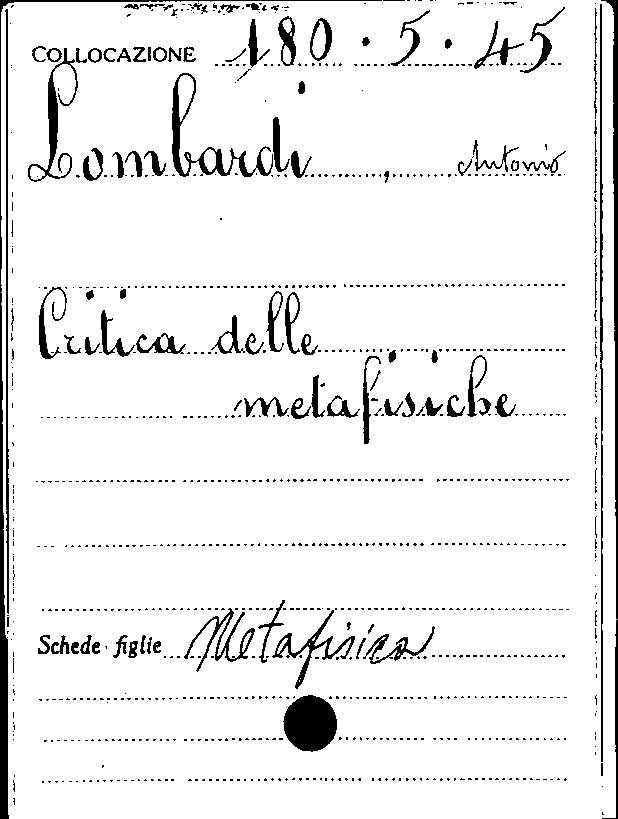 COLLOCAZIONE 180.5.45
Lombardi, Antonio
Critica delle
metafisiche
Schede figlie Metafisica